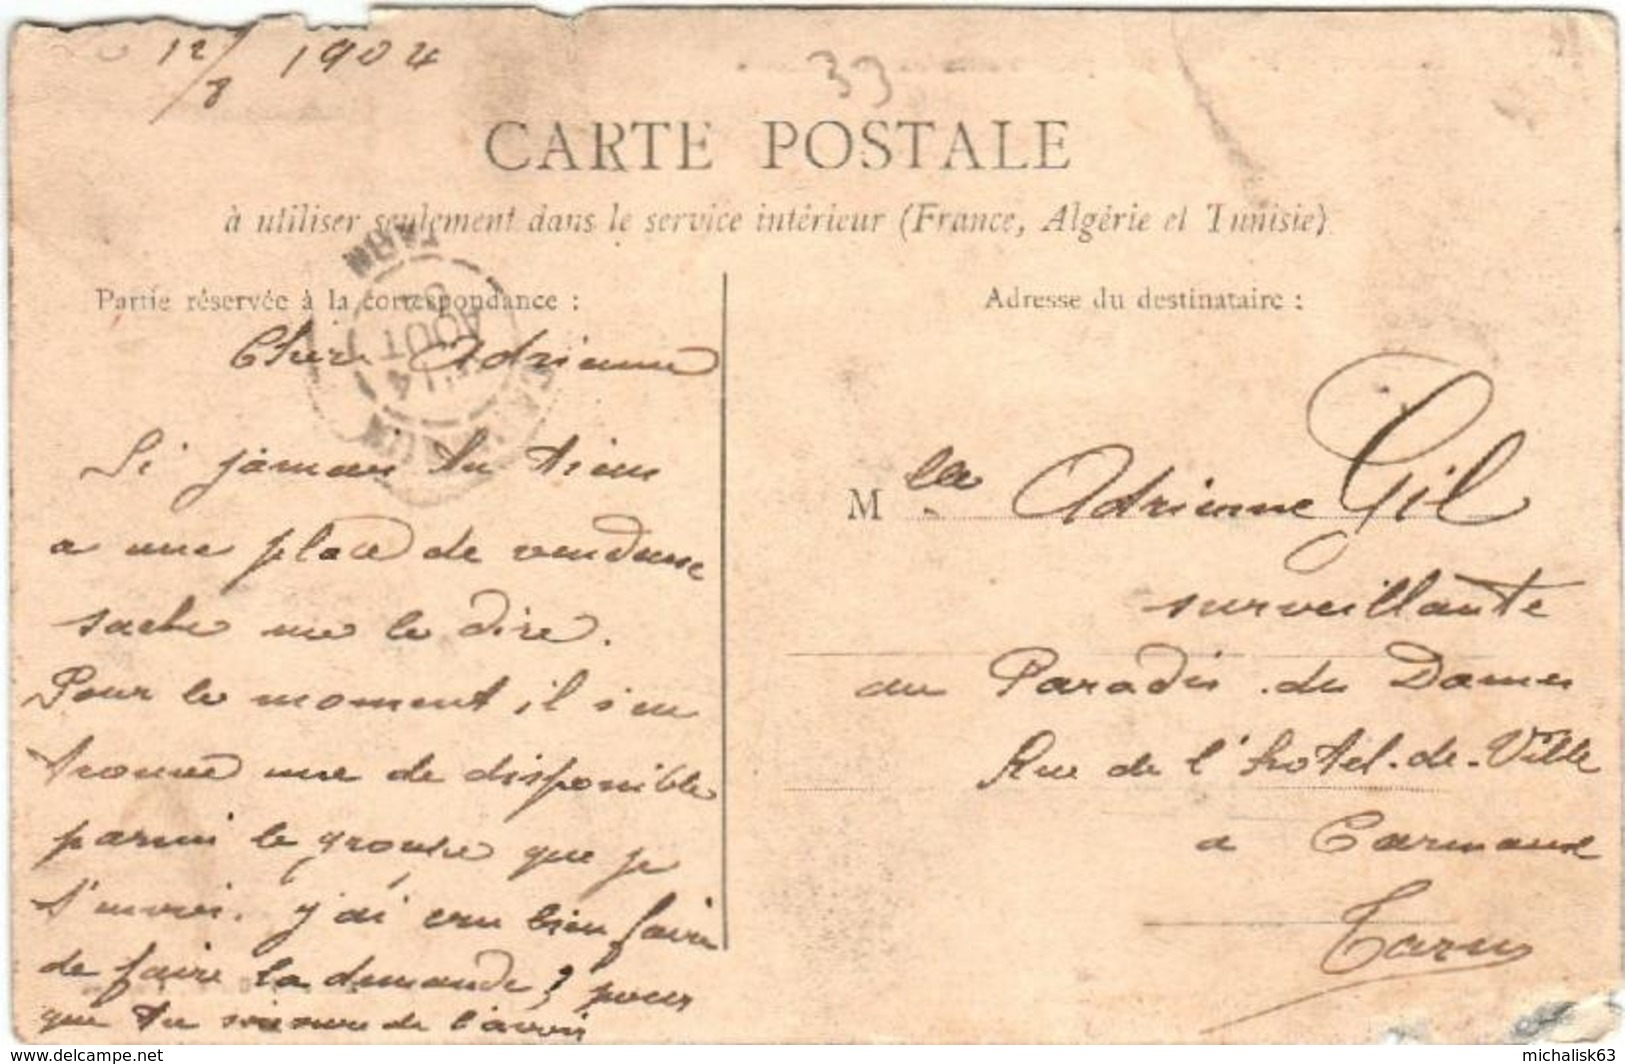 12/8 1904
33
CARTE POSTALE
à utiliser seulement dans le service intérieur (France, Algérie et Tunisie)
Partie réservée à la correspondance :
Chère Adrienne
Si jamais tu
a une place de vendeuse
sache me le dire.
Pour le moment il s'en
trouve une de disponible
parmi le groupe que je
. j'ai cru bien faire
de faire la demande, pour
que tu de l'avoir
TARN
AOUT
CARMAUX
Adresse du destinataire :
Mlle Adrienne Gil
surveillante
au Paradis des Dames
Rue de l'hotel-de-Ville
a Carmaux
Tarn
michalisk63
www.delcampe.net